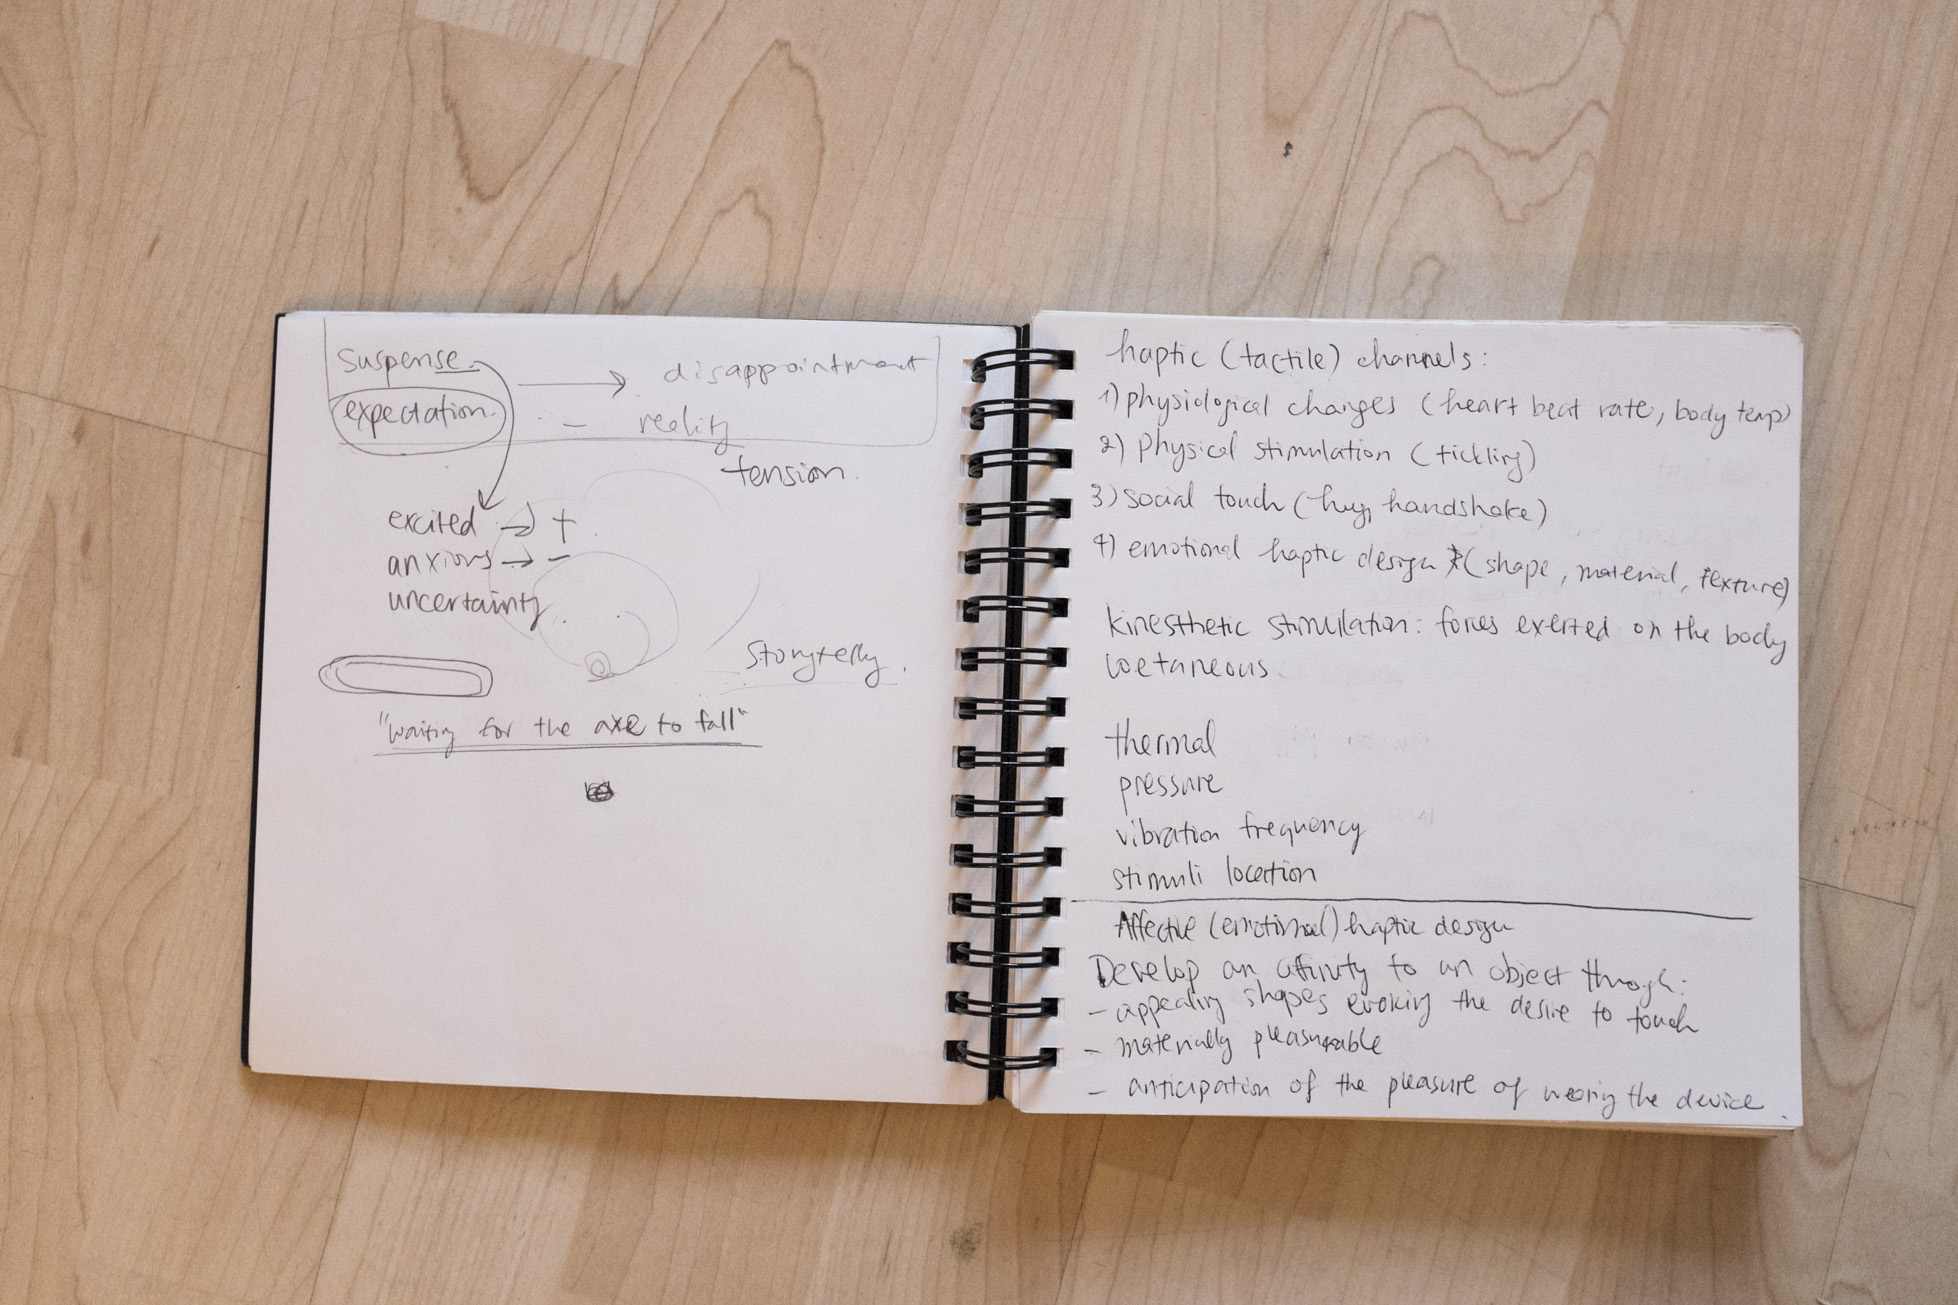 suspense
disappointment
expectation.
- reality
tension.
excited → +
anxious → -
uncertainty.
"waiting for the axe to fall"
haptic (tactile) channels:
1) physiological changes (heart beat rate, body temp)
2) Physical stimulation (tickling)
3) social touch (hug, handshake)
4) emotional haptic design (shape, material, texture)
kinesthetic stimulation: forces exerted on the body
coetaneous
thermal
pressure
vibration frequency
stimuli location
Affective (emotional) haptic design
Develop an affinity to an object through:
- appealing shapes evoking the desire to touch
- materially pleasurable
- anticipation of the pleasure of wearing the device.